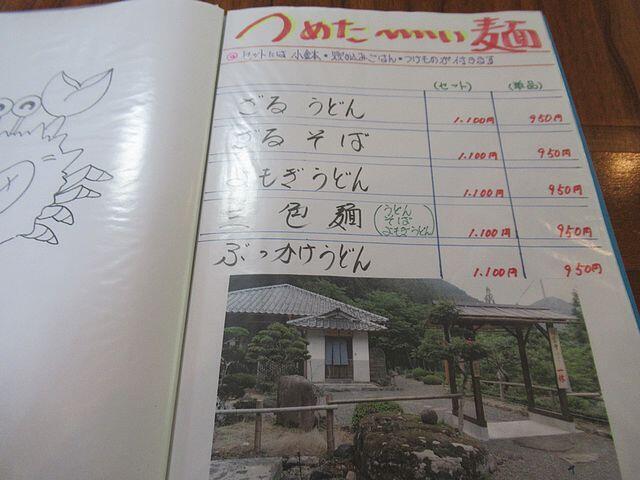 つめた〜い麺
◎セットには 小鉢・炊き込みごはん・つけものが付きます
(セット) (単品)
ざるうどん 1.100円 950円
ざるそば 1.100円 950円
よもぎうどん 1.100円 950円
三色麺 (うどん そば よもぎうどん) 1.100円 950円
ぶっかけうどん 1.100円 950円